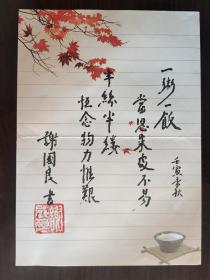 一粥一飯
當思來處不易
半絲半縷
恒念物力惟艱
壬寅季秋
謝國良書